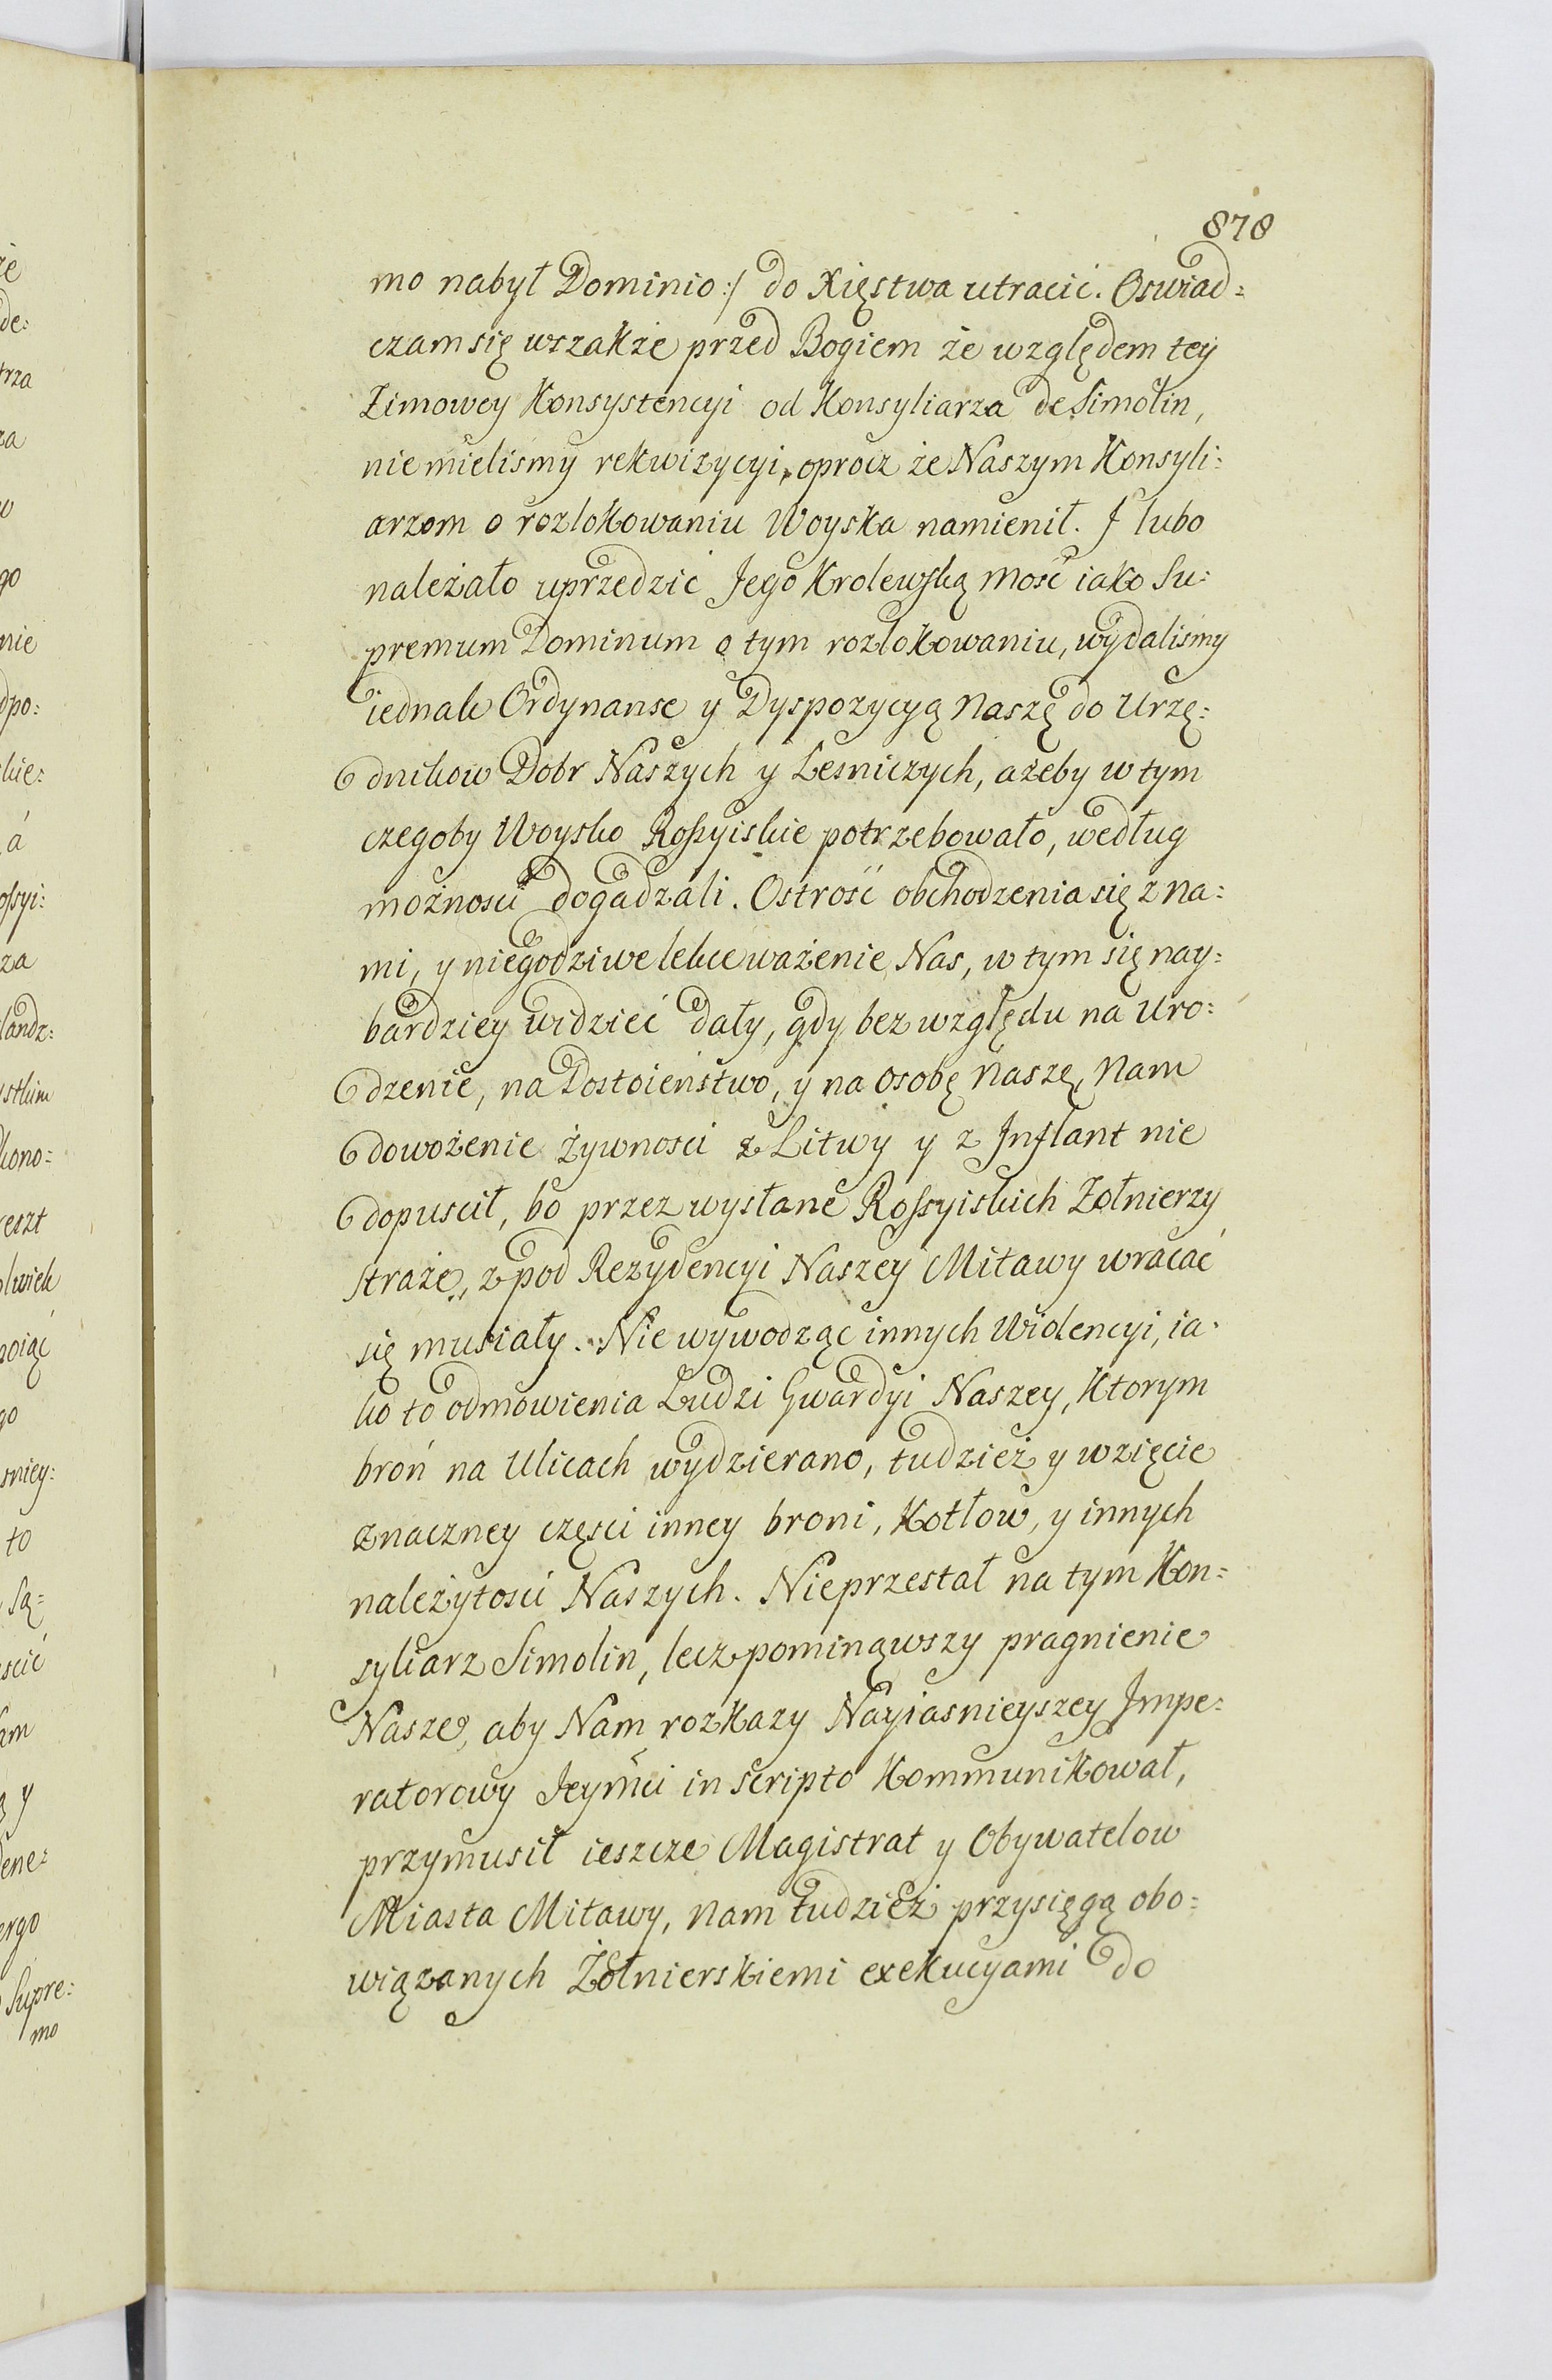 878
mo nabył Dominio :/ do Xięstwa utracić. Oswiad=
czam się wszakże przed Bogiem że względem tey
Zimowey Konsystencyi od Konsyliarza de Simolin,
nie mielismy rekwizycyi, oprocz że Naszym Konsyli:
arzom o rozlokowaniu Woyska namienił. J lubo
należało uprzedzić Jego Krolewską Mość iako Su:
premum Dominum o tym rozlokowaniu, wydalismy
iednak Ordynanse y Dyspozycyą Naszę do Urzę:
dnikow Dobr Naszych y Lesniczych, ażeby w tym
czegoby Woysko Rossyiskie potrzebowało, według
możnosci dogadzali. Ostrość obchodzenia się z na:
mi, y niegodziwe lekce ważenie Nas, w tym się nay:
bardziey widzieć dały, gdy bez względu na Uro:
dzenie, na Dostoieństwo, y na Osobę Naszę, Nam
dowożenie żywnosci z Litwy y z Inflant nie
dopuscił, bo przez wysłane Rossyiskich Zołnierzy
straże, z pod Rezydencyi Naszey Mitawy wracać
się musiały. Nie wywodząc innych Violencyi, ia:
ko to odmowienia Ludzi Gwardyi Naszey, Ktorym
broń na Ulicach wydzierano, tudzież y wzięcie
znaczney częsci inney broni, Kotłow, y innych
należytosci Naszych. Nieprzestał na tym Kon=
syliarz Simolin, lecz pominąwszy pragnienie
Nasze, aby Nam rozkazy Nayiasnieyszey Jmpe:
ratorowy Jeymci in scripto Kommunikował,
przymusił ieszcze Magistrat y Obywatelow
Miasta Mitawy, Nam tudzież przysięgą obo:
wiązanych Żołnierskiemi exekucyami do